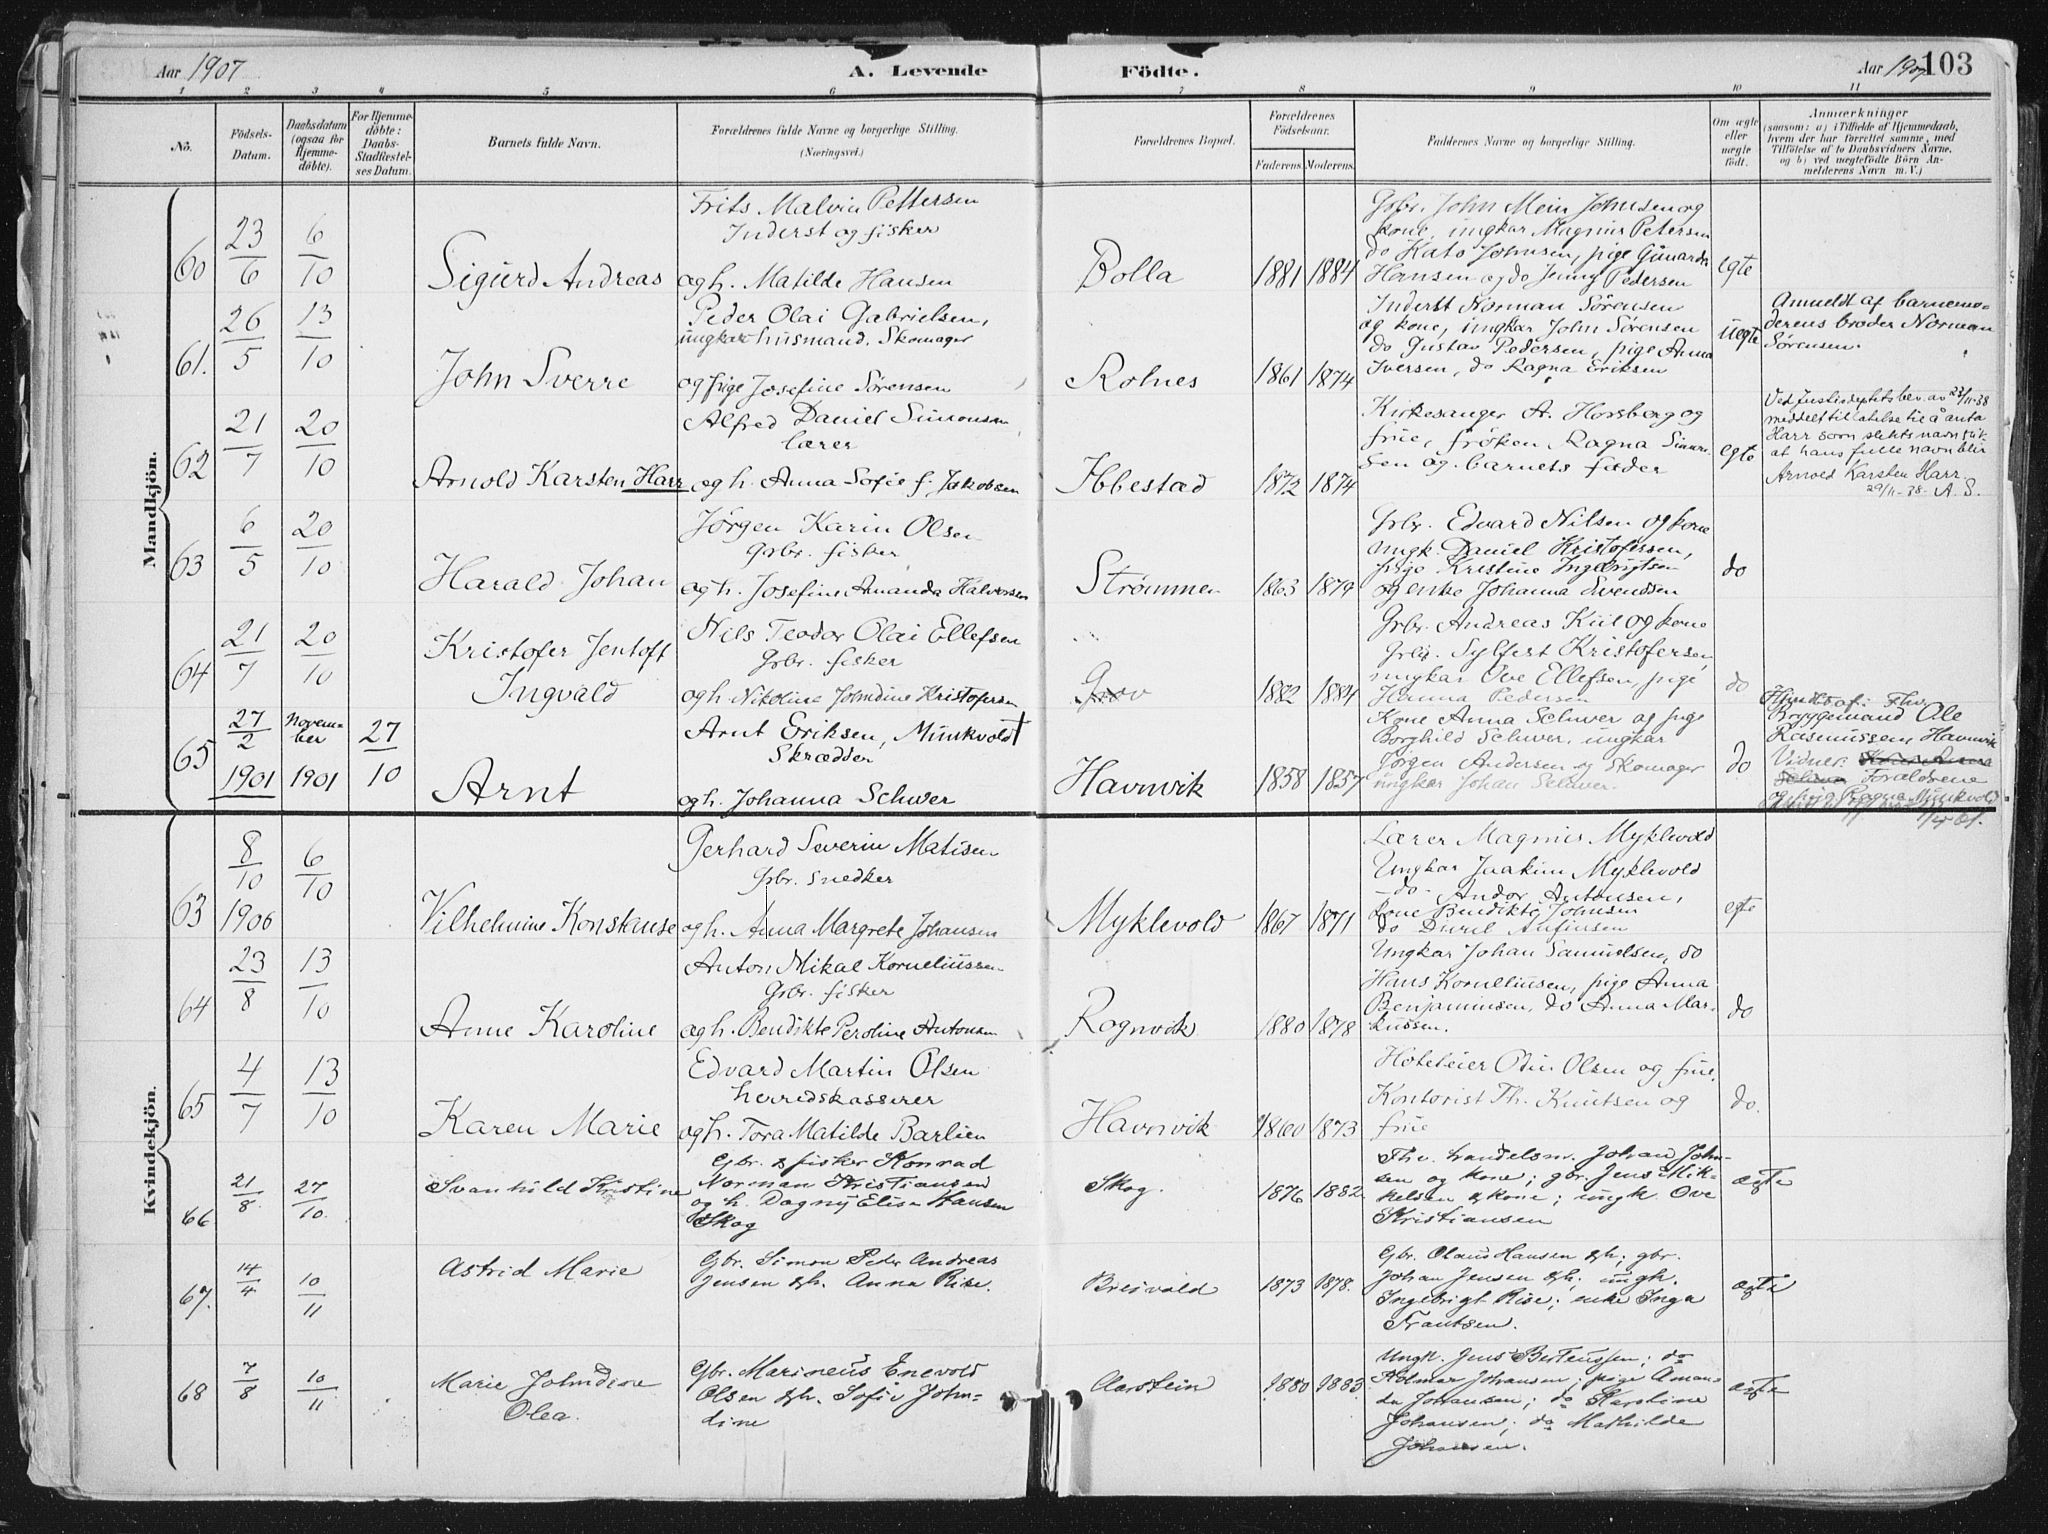 Aar 1907
A. Levende
Födte.
Aar 1907
103
1 2 3 4 5 6 7 8 9 10 11
No.
Födsels-Datum.
Daabsdatum (ogsaa for Hjemme-döbte).
For Hjemme-döbte: Daabs-Stadfæstel-ses Datum.
Barnets fulde Navn.
Forældrenes fulde Navne og borgerlige Stilling.
(Næringsvei.)
Forældrenes Bopæl.
Forældrenes Födselsaar.
Faderens. Moderens.
Faddernes Navne og borgerlige Stilling.
Om ægte eller uægte födt.
Anmærkninger
(saasom: a) i Tilfælde af Hjemmedaab,
hvem der har forrettet samme, med
Tilföielse af to Daabsvidners Navne,
og b) ved uægtefödte Börn An-
melderens Navn m. V.)
Mandkjön.
60
23/6
6/10
Sigurd Andreas
Frits Malvin Pettersen
Inderst og fisker
og h. Matilde Hansen
Bolla
1881 1884
Grbr. John Mein Johnsen og
kone, ungkar Magnus Petersen
do Kato Johnsen, pige Gunarda
Hansen og do Jenny Pedersen
egte
61.
26/5
13/10
John Sverre
Peder Olai Gabrielsen,
ungkar husmand, Skomager
og pige Josefine Sørensen
Rolnes
1861 1874
Inderst Norman Sörensen
og kone, ungkar John Sörensen
do Gustav Pedersen, pige Anna
Iversen, do Ragna Eriksen
uegte
Anmeldt af barnemo-
derens broder Norman
Sörensen.
62
21/7
20/10
Arnold Karsten Harr
Alfred Daniel Simonsen
lærer
og h. Anna Sofie f. Jakobsen
Ibbestad
1872 1874
Kirkesanger A. Horsberg og
frue, fröken Ragna Simon-
sen og barnets fader
egte
Ved Justisdeptets bev. av 22/11-38
meddelt tillatelse til å anta
Harr som slektsnavn slik
at hans fulle navn blir
Arnold Karsten Harr
29/11-38 A. S.
63
6/5
20/10
Harald Johan
Jörgen Karin Olsen
Grbr. fisker
og h. Josefine Amanda Halvorsen
Strömmen
1863 1879
Grbr. Edvard Nilsen og kone
ungk. Daniel Kristofersen,
pige Kristine Ingebrigtsen
og enke Johanna Svendsen
do
64
21/7
20/10
Kristofer Jentoft
Ingvald
Nils Teodor Olai Ellefsen
Grbr. fisker
og h. Nikoline Johndine Kristofersen
Grov
1882 1884
Grbr. Andreas Kiil og kone
Grbr. Sylfest Kristofersen,
ungkar Ove Ellefsen, pige
Hanna Pedersen
do
65
27/2 1901
November 1901
27/10
Arnt
Arnt Eriksen, Munkvold †
Skrædder
og h. Johanna Schver
Havnvik
1858 1857
Kone Anna Schver og pige
Borghild Schver, ungkar
Jörgen Andersen og Skomager
ungkar Johan Schver.
do
Hjmdt af: Fhv.
Bryggemand Ole
Rasmussen Havnvik
Vidner: Kone Anna
Forældrene
og pige Ragna Munkvold
Kvindekjön.
63
8/10 1906
6/10
Vilhelmine Konstanse
Gerhard Severin Matisen
Grbr. snedker
og h. Anna Margrete Johansen
Myklevold
1867 1871
Lærer Magnus Myklevold
Ungkar Joakim Myklevold
do Andor Antonsen,
Kone Bendikte Johnsen
do Anfinsen
egte
64
23/8
13/10
Anne Karoline
Anton Mikal Korneliussen
Grbr. fisker
og h. Bendikte Peroline Antonsen
Rognvik
1880 1878
Ungkar Johan Samuelsen, do
Hans Korneliusen, pige Anna
Benjaminsen, do Anna Mar-
kussen.
do
65
4/7
13/10
Karen Marie
Edvard Martin Olsen
herredskasserer
og h. Tora Matilde Barlien
Havnvik
1860 1873
Hoteleier Odin Olsen og frue,
Kontorist Th. Knutsen og
frue
do.
66
21/8.
27/10.
Svanhild Kristine
Gbr. & fisker Konrad
Norman Kristiansen
og h. Dagny Elise Hansen
Skog
Skog.
1876 1882
Fhv. handelsm. Johan John-
sen og kone; gbr. Jens Mik-
kelsen & kone; ungk. Ove
Kristiansen
ægte
67.
14/4
10/11
Astrid Marie
Gbr. Simon Peder Andreas
Jensen & h. Anna Rise.
Breivold
1873 1878.
Gbr. Olaus Hansen & h; gbr.
Johan Jensen & h; ungk.
Ingebrigt Rise; enke Inga
Frantsen.
ægte
68
7/8
10/11
Marie Johndine
Olea.
Gbr. Marineus Enevold
Olsen & h. Sofie John-
dine
Aarstein
1880 1883
Ungk. Jens Berteussen; do
Hilmar Johansen; pige Aman-
da Johansen; do Karstine
Johansen; do Mathilde
Johansen.
ægte